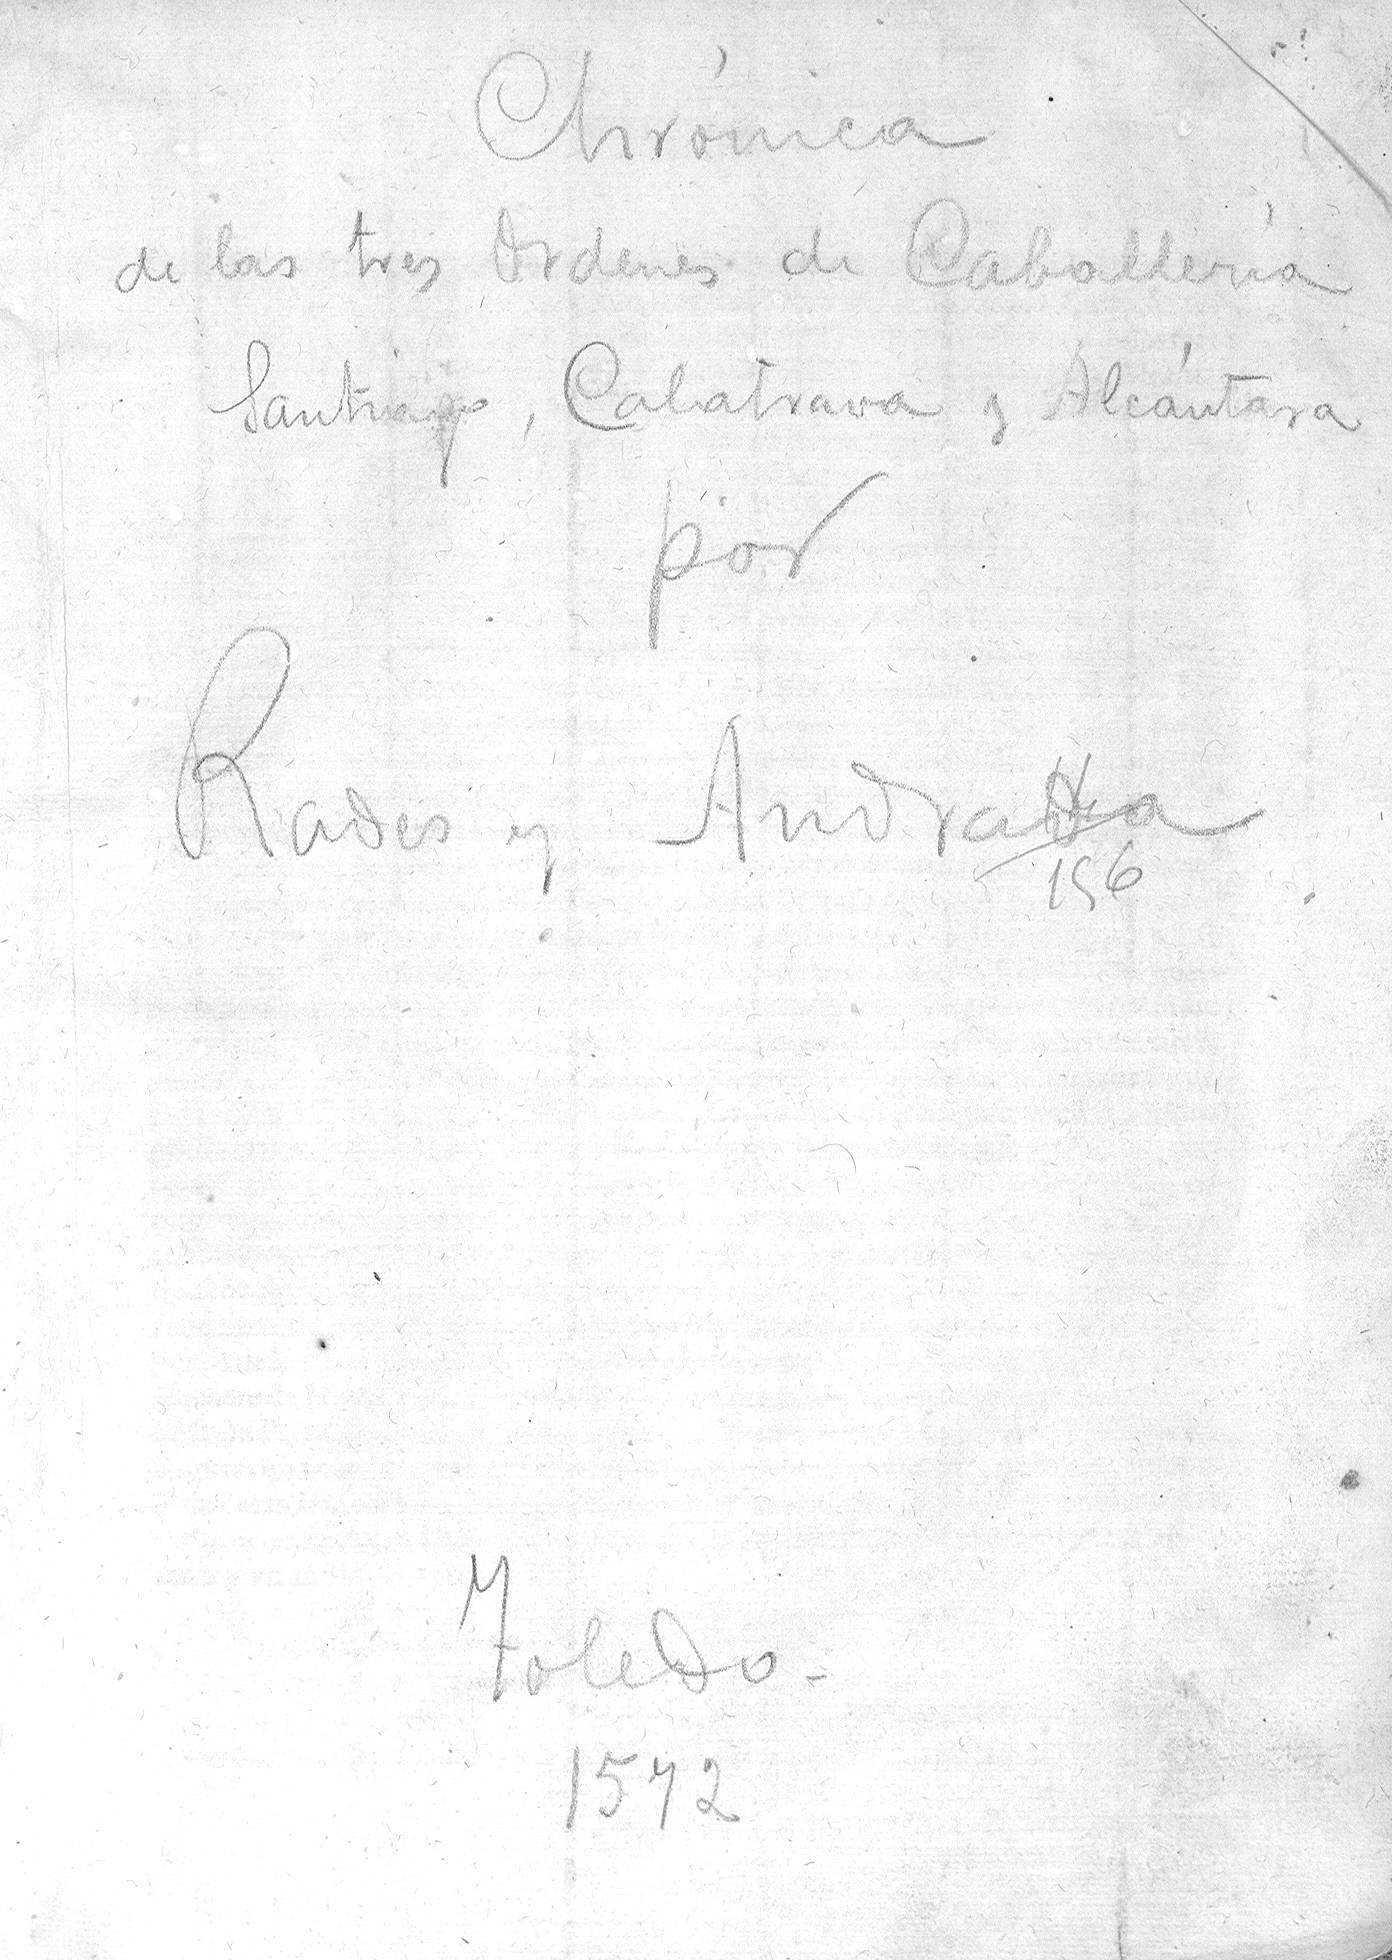 Chrónica
de las tres Ordenes de Caballería
Santiago, Calatrava y Alcántara
por
Rades y Andrada
156
Toledo -
1572